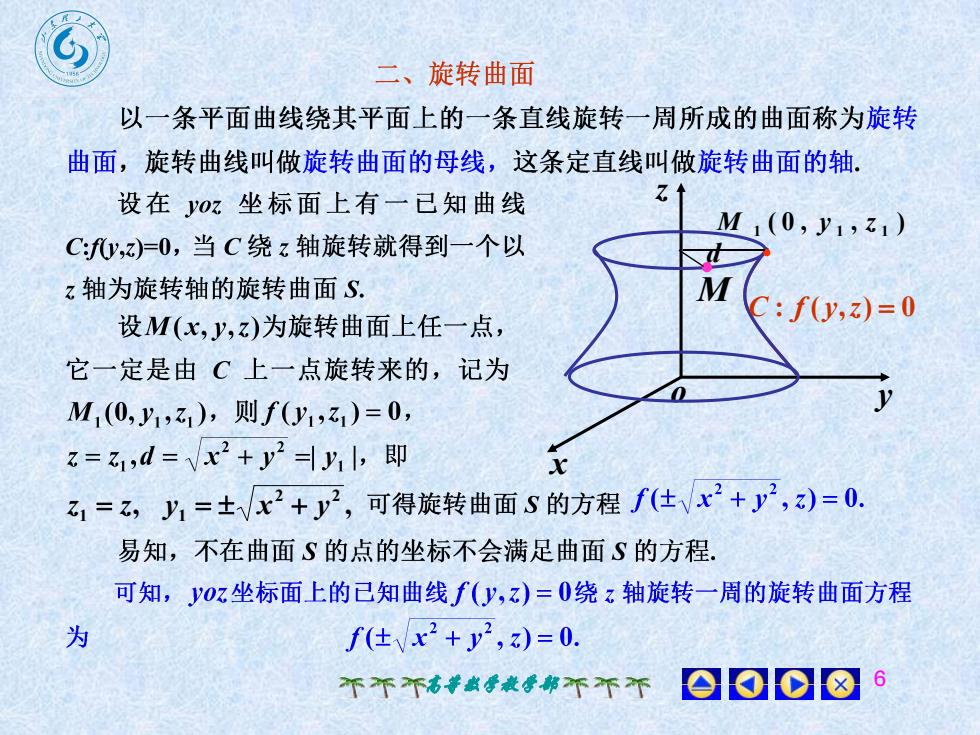 二、旋转曲面
以一条平面曲线绕其平面上的一条直线旋转一周所成的曲面称为旋转
曲面，旋转曲线叫做旋转曲面的母线，这条定直线叫做旋转曲面的轴.
设在 yoz 坐标面上有一已知曲线
C:f(y,z)=0，当 C 绕 z 轴旋转就得到一个以
z 轴为旋转轴的旋转曲面 S.
设M(x, y, z)为旋转曲面上任一点，
它一定是由 C 上一点旋转来的，记为
M₁(0, y₁, z₁)，则 f(y₁, z₁) = 0，
z = z₁, d = √(x² + y²) =| y₁ |，即
z₁ = z, y₁ = ±√(x² + y²), 可得旋转曲面 S 的方程 f(±√(x² + y²), z) = 0.
z
M₁(0, y₁, z₁)
d
M
C : f(y, z) = 0
o
y
x
易知，不在曲面 S 的点的坐标不会满足曲面 S 的方程.
可知，yoz坐标面上的已知曲线 f(y, z) = 0绕 z 轴旋转一周的旋转曲面方程
为 f(±√(x² + y²), z) = 0.
高等数学教学部
6